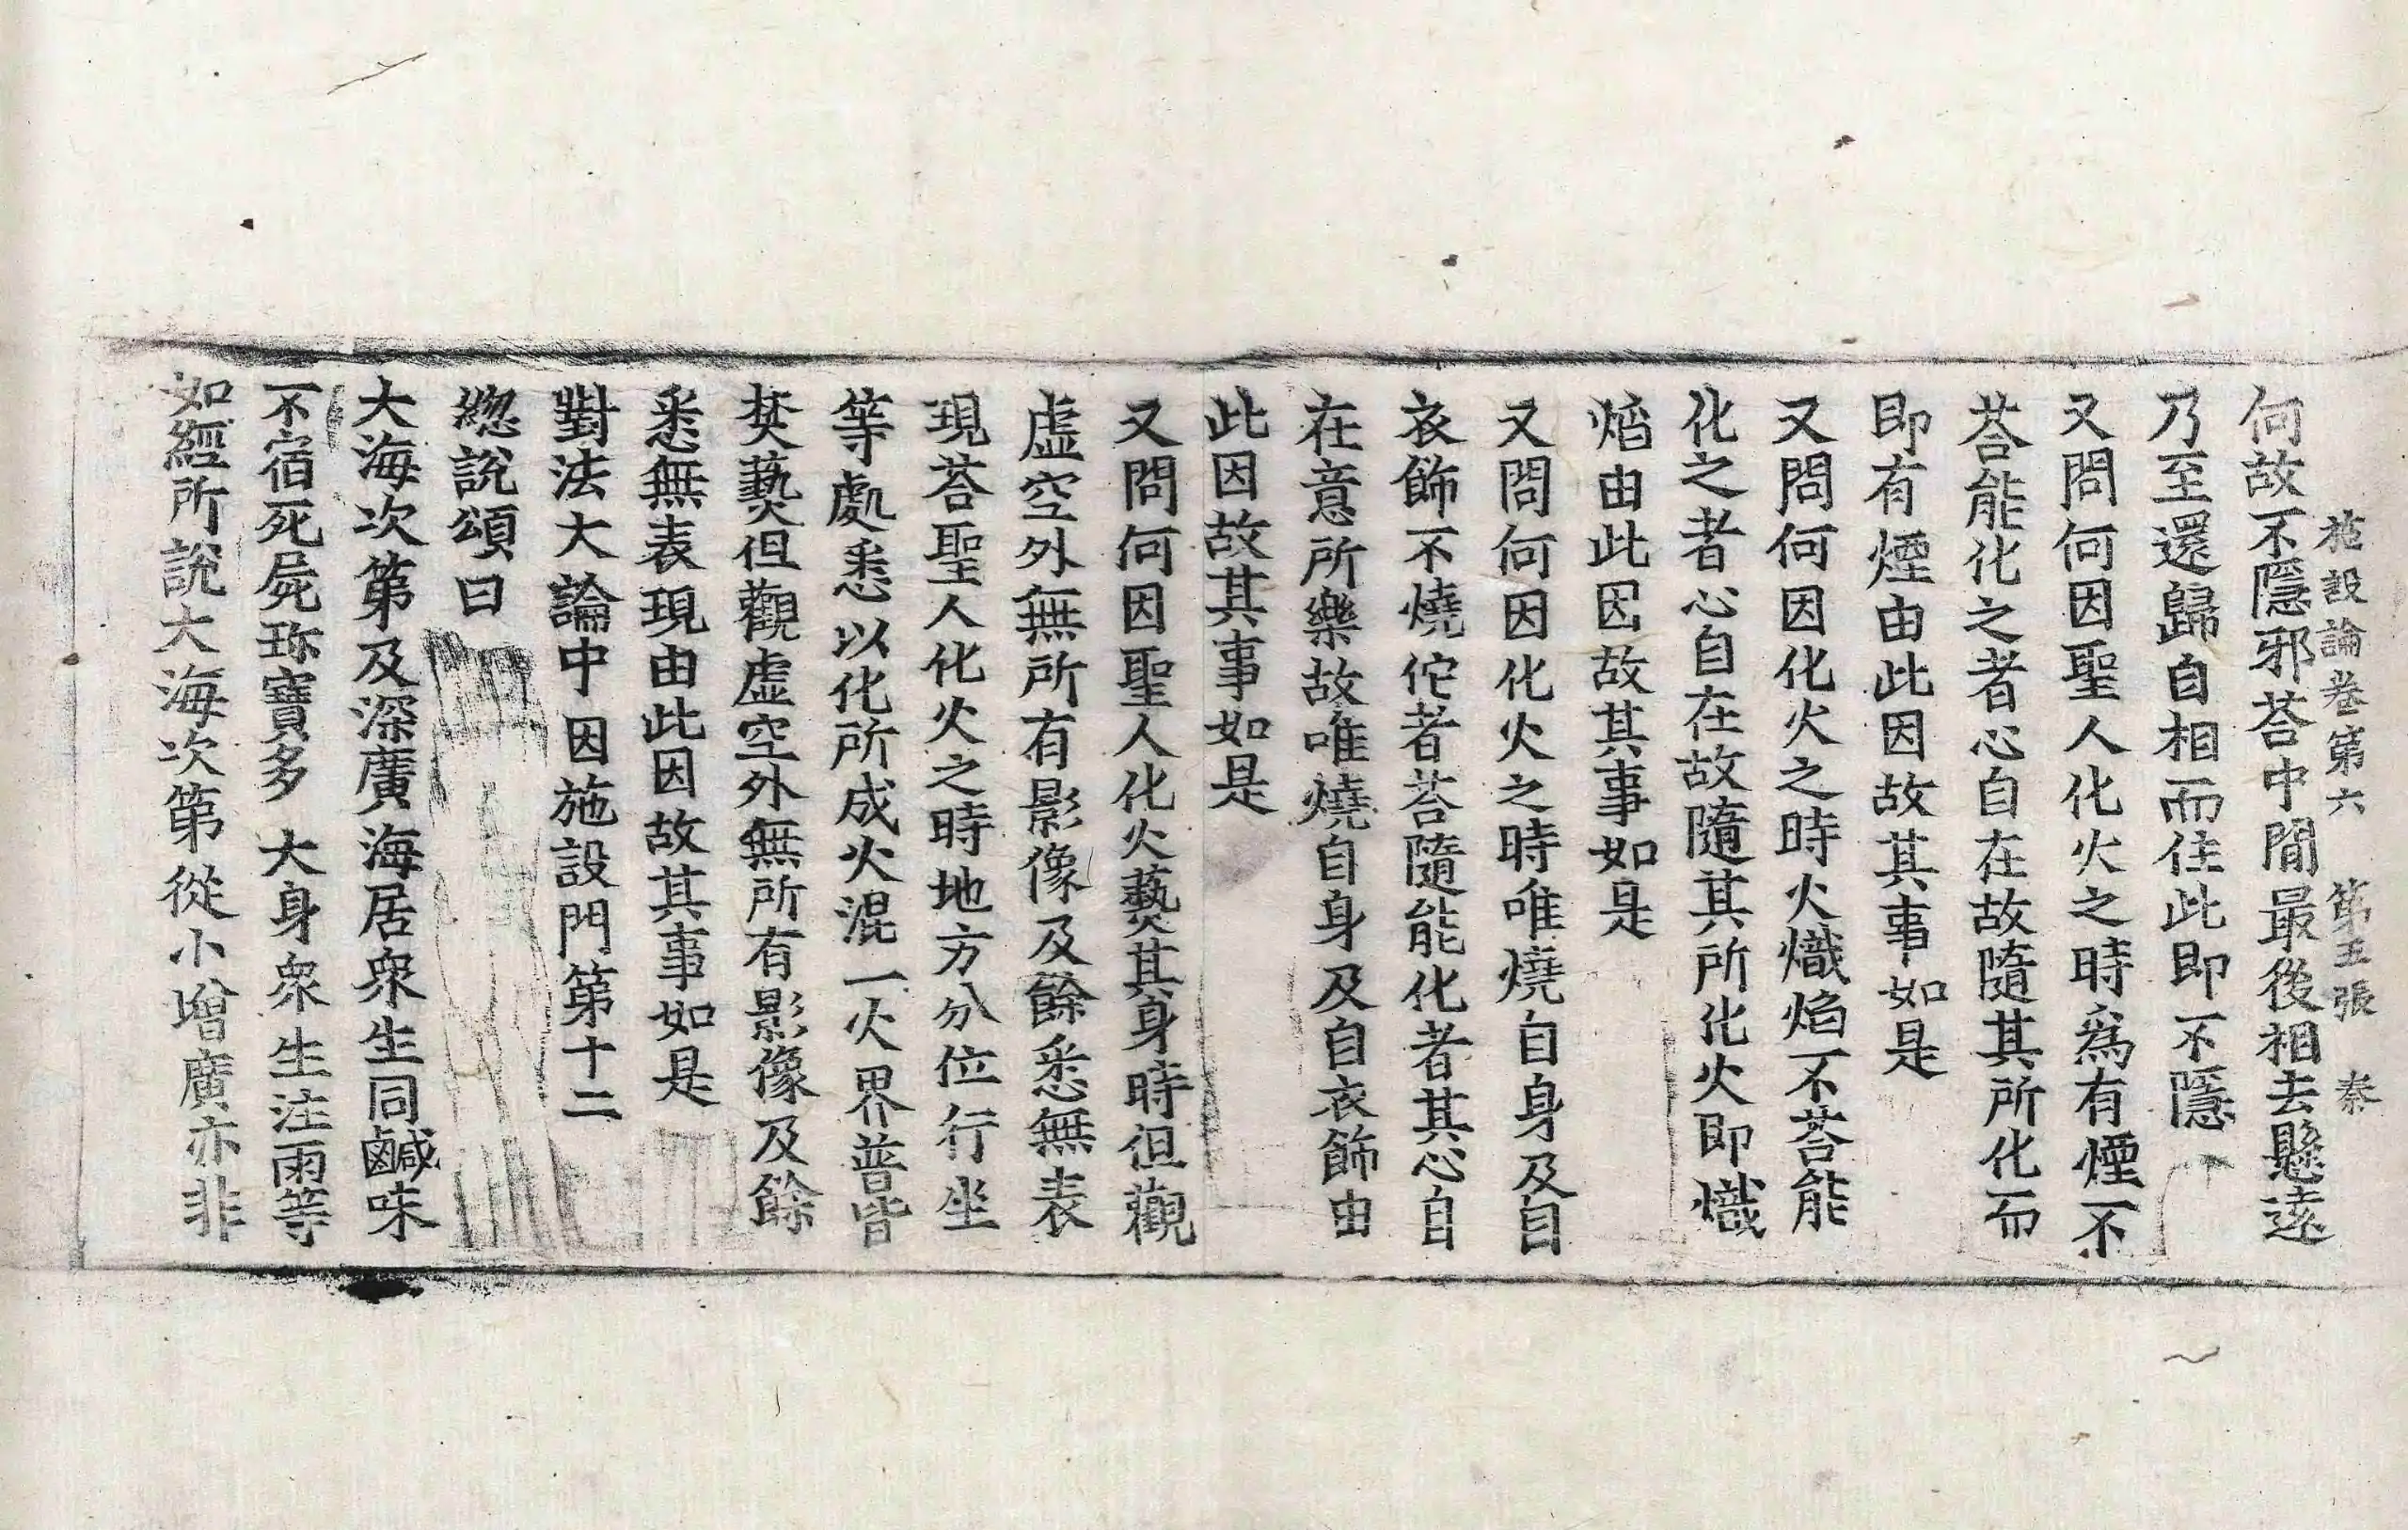 施設論卷第六 第五張 秦
何故不隱邪荅中間最後相去懸遠
乃至還歸自相而住此即不隱
又問何因聖人化火之時爲有煙不
荅能化之者心自在故隨其所化而
即有煙由此因故其事如是
又問何因化火之時火熾焰不荅能
化之者心自在故隨其所化火即熾
焰由此因故其事如是
又問何因化火之時唯燒自身及自
衣飾不燒佗者荅隨能化者其心自
在意所樂故唯燒自身及自衣飾由
此因故其事如是
又問何因聖人化火爇其身時但觀
虛空外無所有影像及餘悉無表
現荅聖人化火之時地方分位行坐
等處悉以化所成火混一火界普皆
焚爇但觀虛空外無所有影像及餘
悉無表現由此因故其事如是
對法大論中因施設門第十二
緫說頌曰
大海次第及深廣海居衆生同鹹味
不宿死屍珎寶多 大身衆生注雨等
如經所說大海次第從小增廣亦非